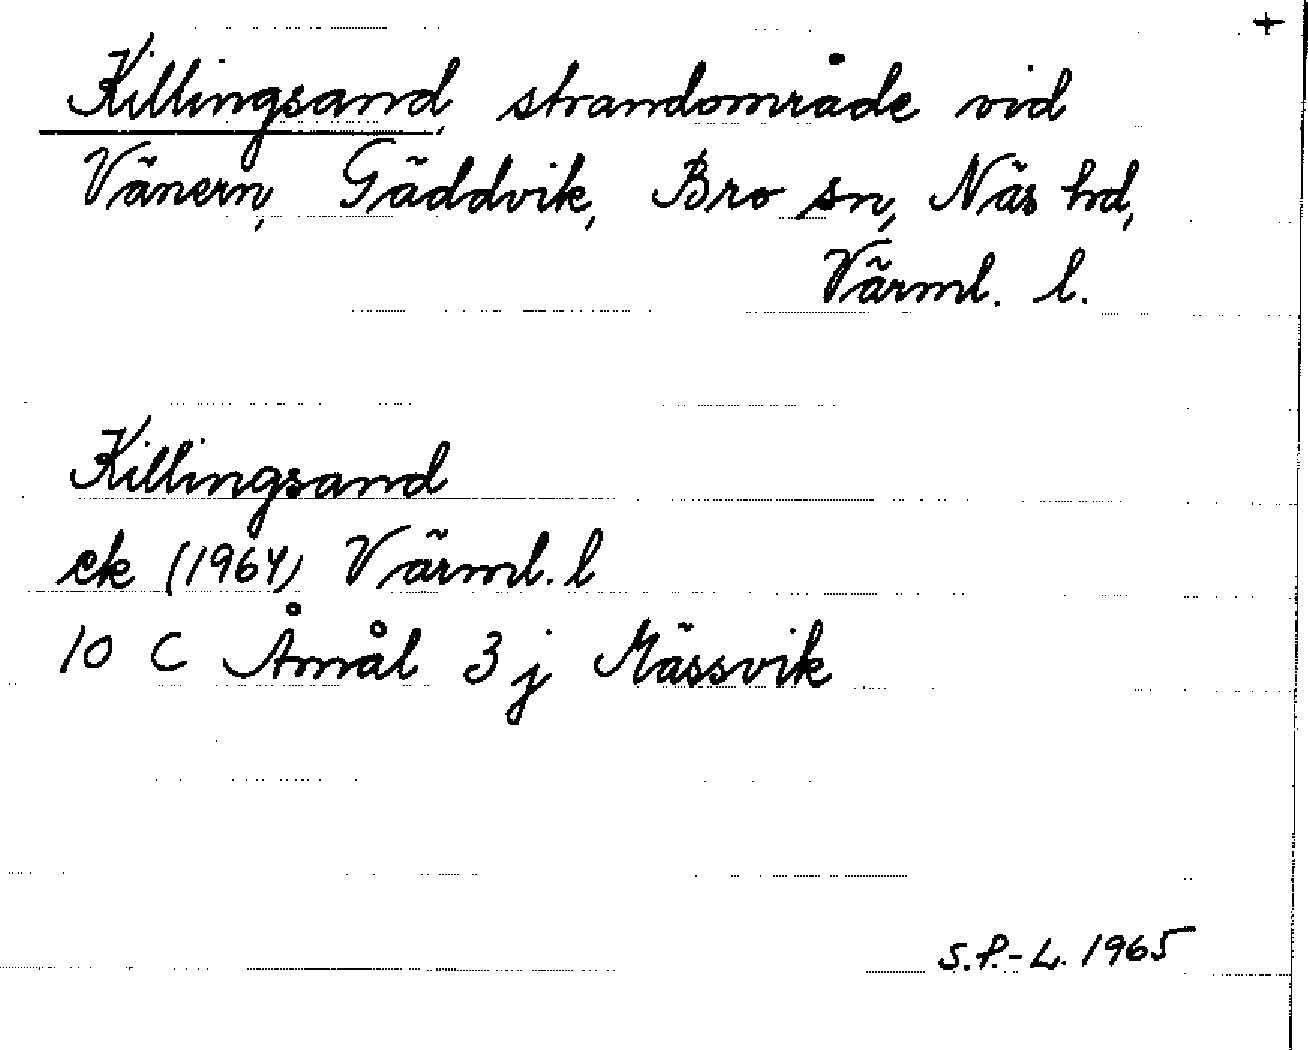 +
Killingsand, strandområde vid
Vänern, Gäddvik, Bro sn, Näs hd,
Värml. l.
Killingsand
ek (1964) Värml. l
10 C Åmål 3 j Mässvik
S.P.-L. 1965